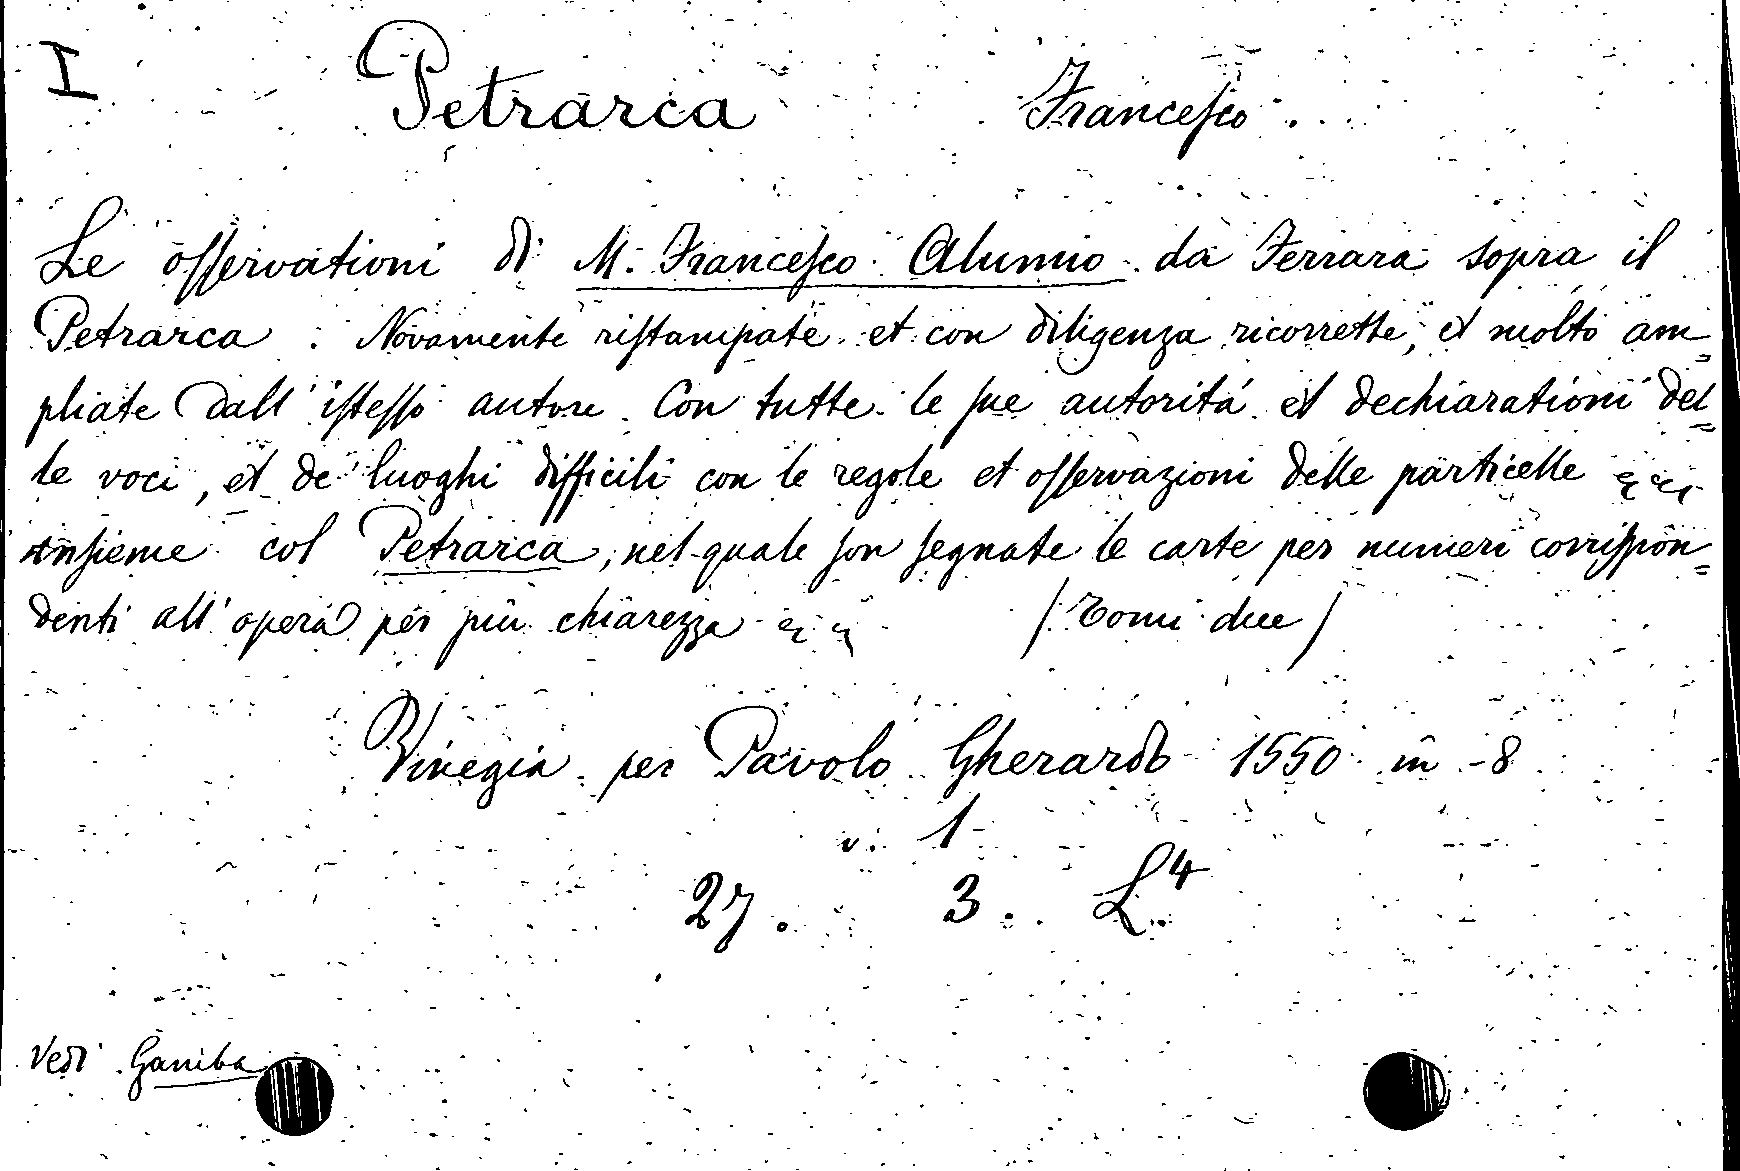 I Petrarca Francesco.
Le osservationi di M. Francesco Alunno da Ferrara sopra il
Petrarca. Novamente ristampate et con diligenza ricorrette, et molto am=
pliate dall'istesso autore. Con tutte le sue autorità et dechiarationi del=
le voci, et de' luoghi difficili con le regole et osservazioni delle particelle
insieme col Petrarca, nel quale son segnate le carte per numeri corrispon=
denti all'opera per più chiarezza (Tomi due)
Vinegia per Pavolo Gherardo 1550 in-8
v. 1
27. 3. L.4
Vedi Gamba